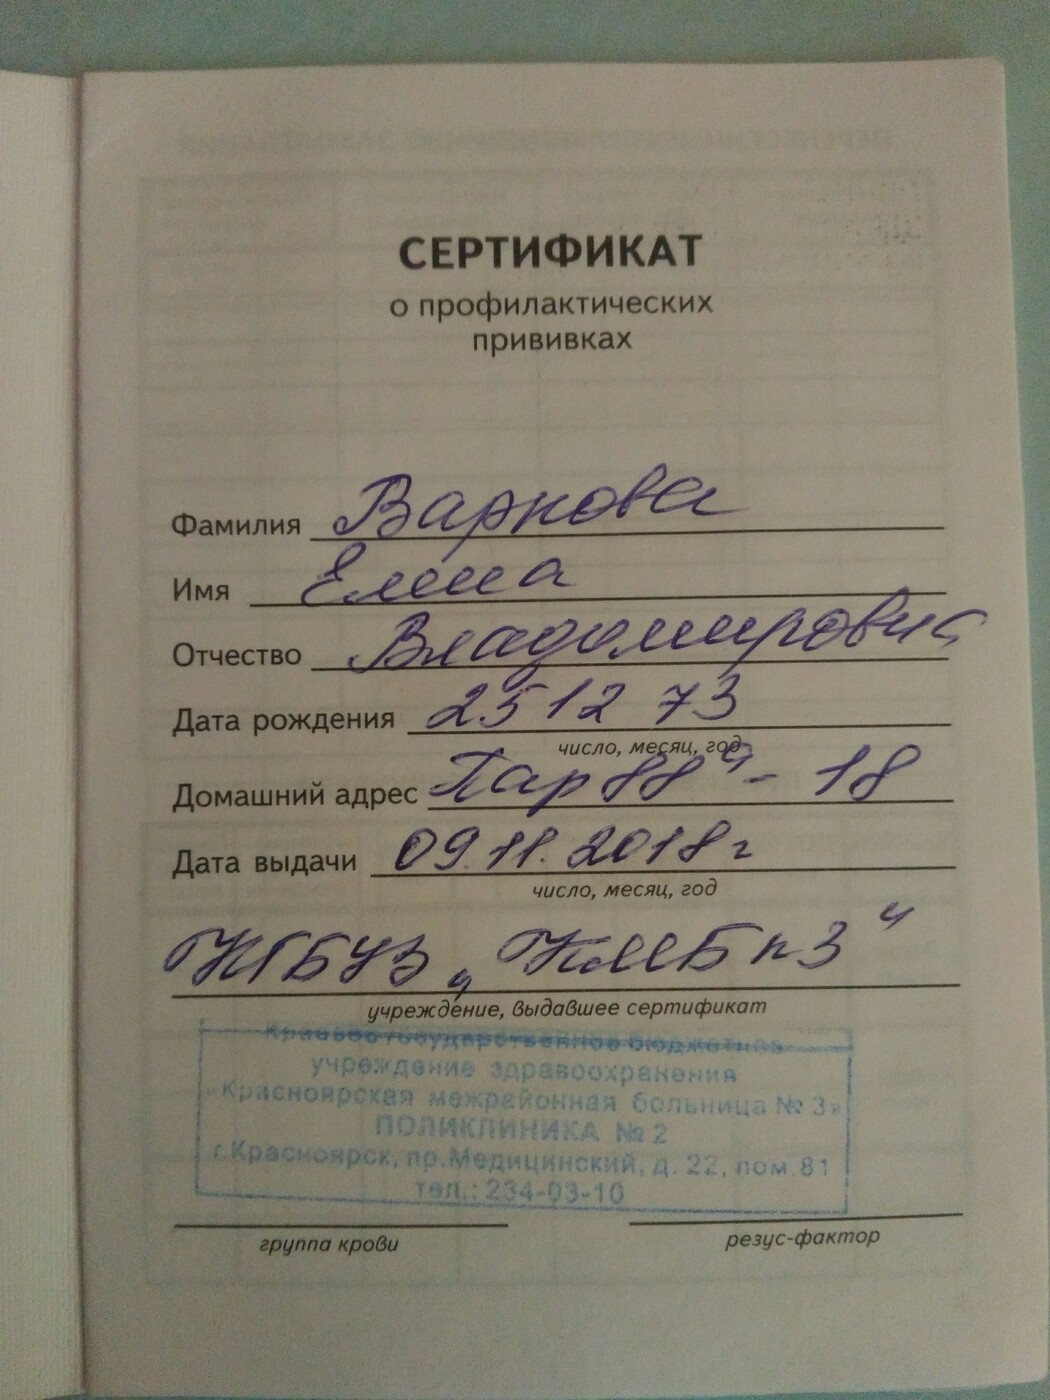 СЕРТИФИКАТ
о профилактических
прививках
Фамилия Варкова
Имя Елена
Отчество Владимирович
Дата рождения 25 12 73
число, месяц, год
Домашний адрес Пар 88 - 18
Дата выдачи 09.11.2018г
число, месяц, год
КГБУЗ „КМБ №3“
учреждение, выдавшее сертификат
Краевое государственное бюджетное
учреждение здравоохранения
«Красноярская межрайонная больница № 3»
ПОЛИКЛИНИКА № 2
г.Красноярск, пр.Медицинский, д. 22, пом.81
тел.: 234-03-10
группа крови резус-фактор